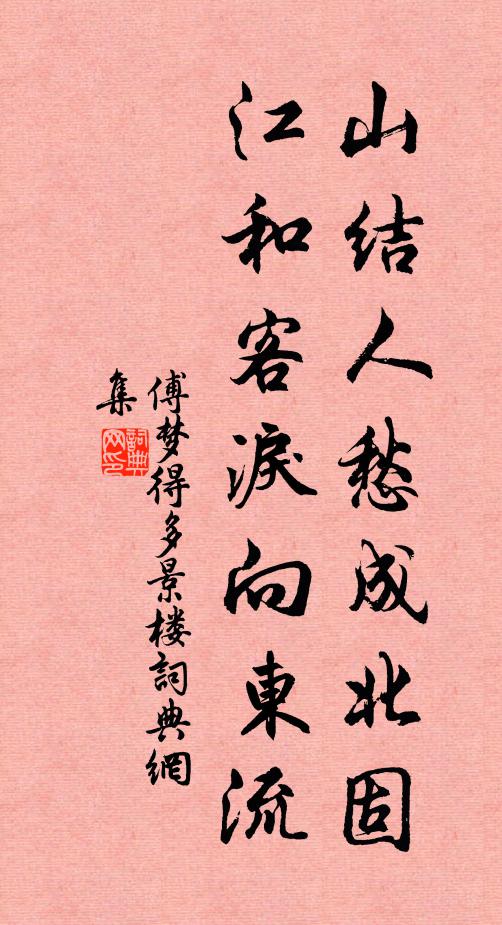 山结人愁成北固
江和客淚向東流
傅梦得多景楼詞典網
集
詞典
网印